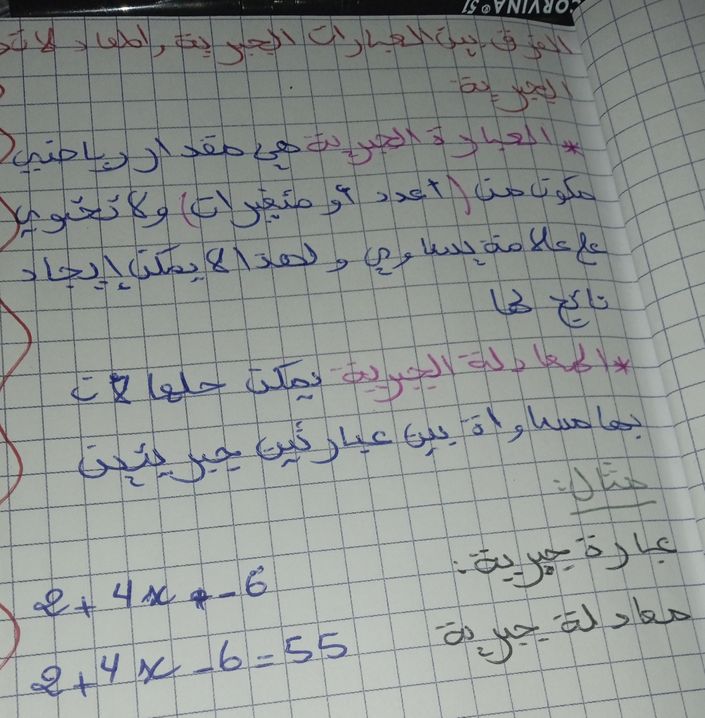 CORVINA®51
الفرق بين العبارات الجبرية والمعادلات
الجبرية
* العبارة الجبرية هي مقدار رياضي
مكون من (أعدد أو متغيرات) ولا تحتوي
على علامة يساوي ولهذا لا يمكن إيجاد
ناتج لها
* المعادلة الجبرية يمكن حلها لأن
بها مساواة بين عبارتين جبريتين
مثال:
عبارة جبرية:
2+4x-6
معادلة جبرية
2+4x-6=55